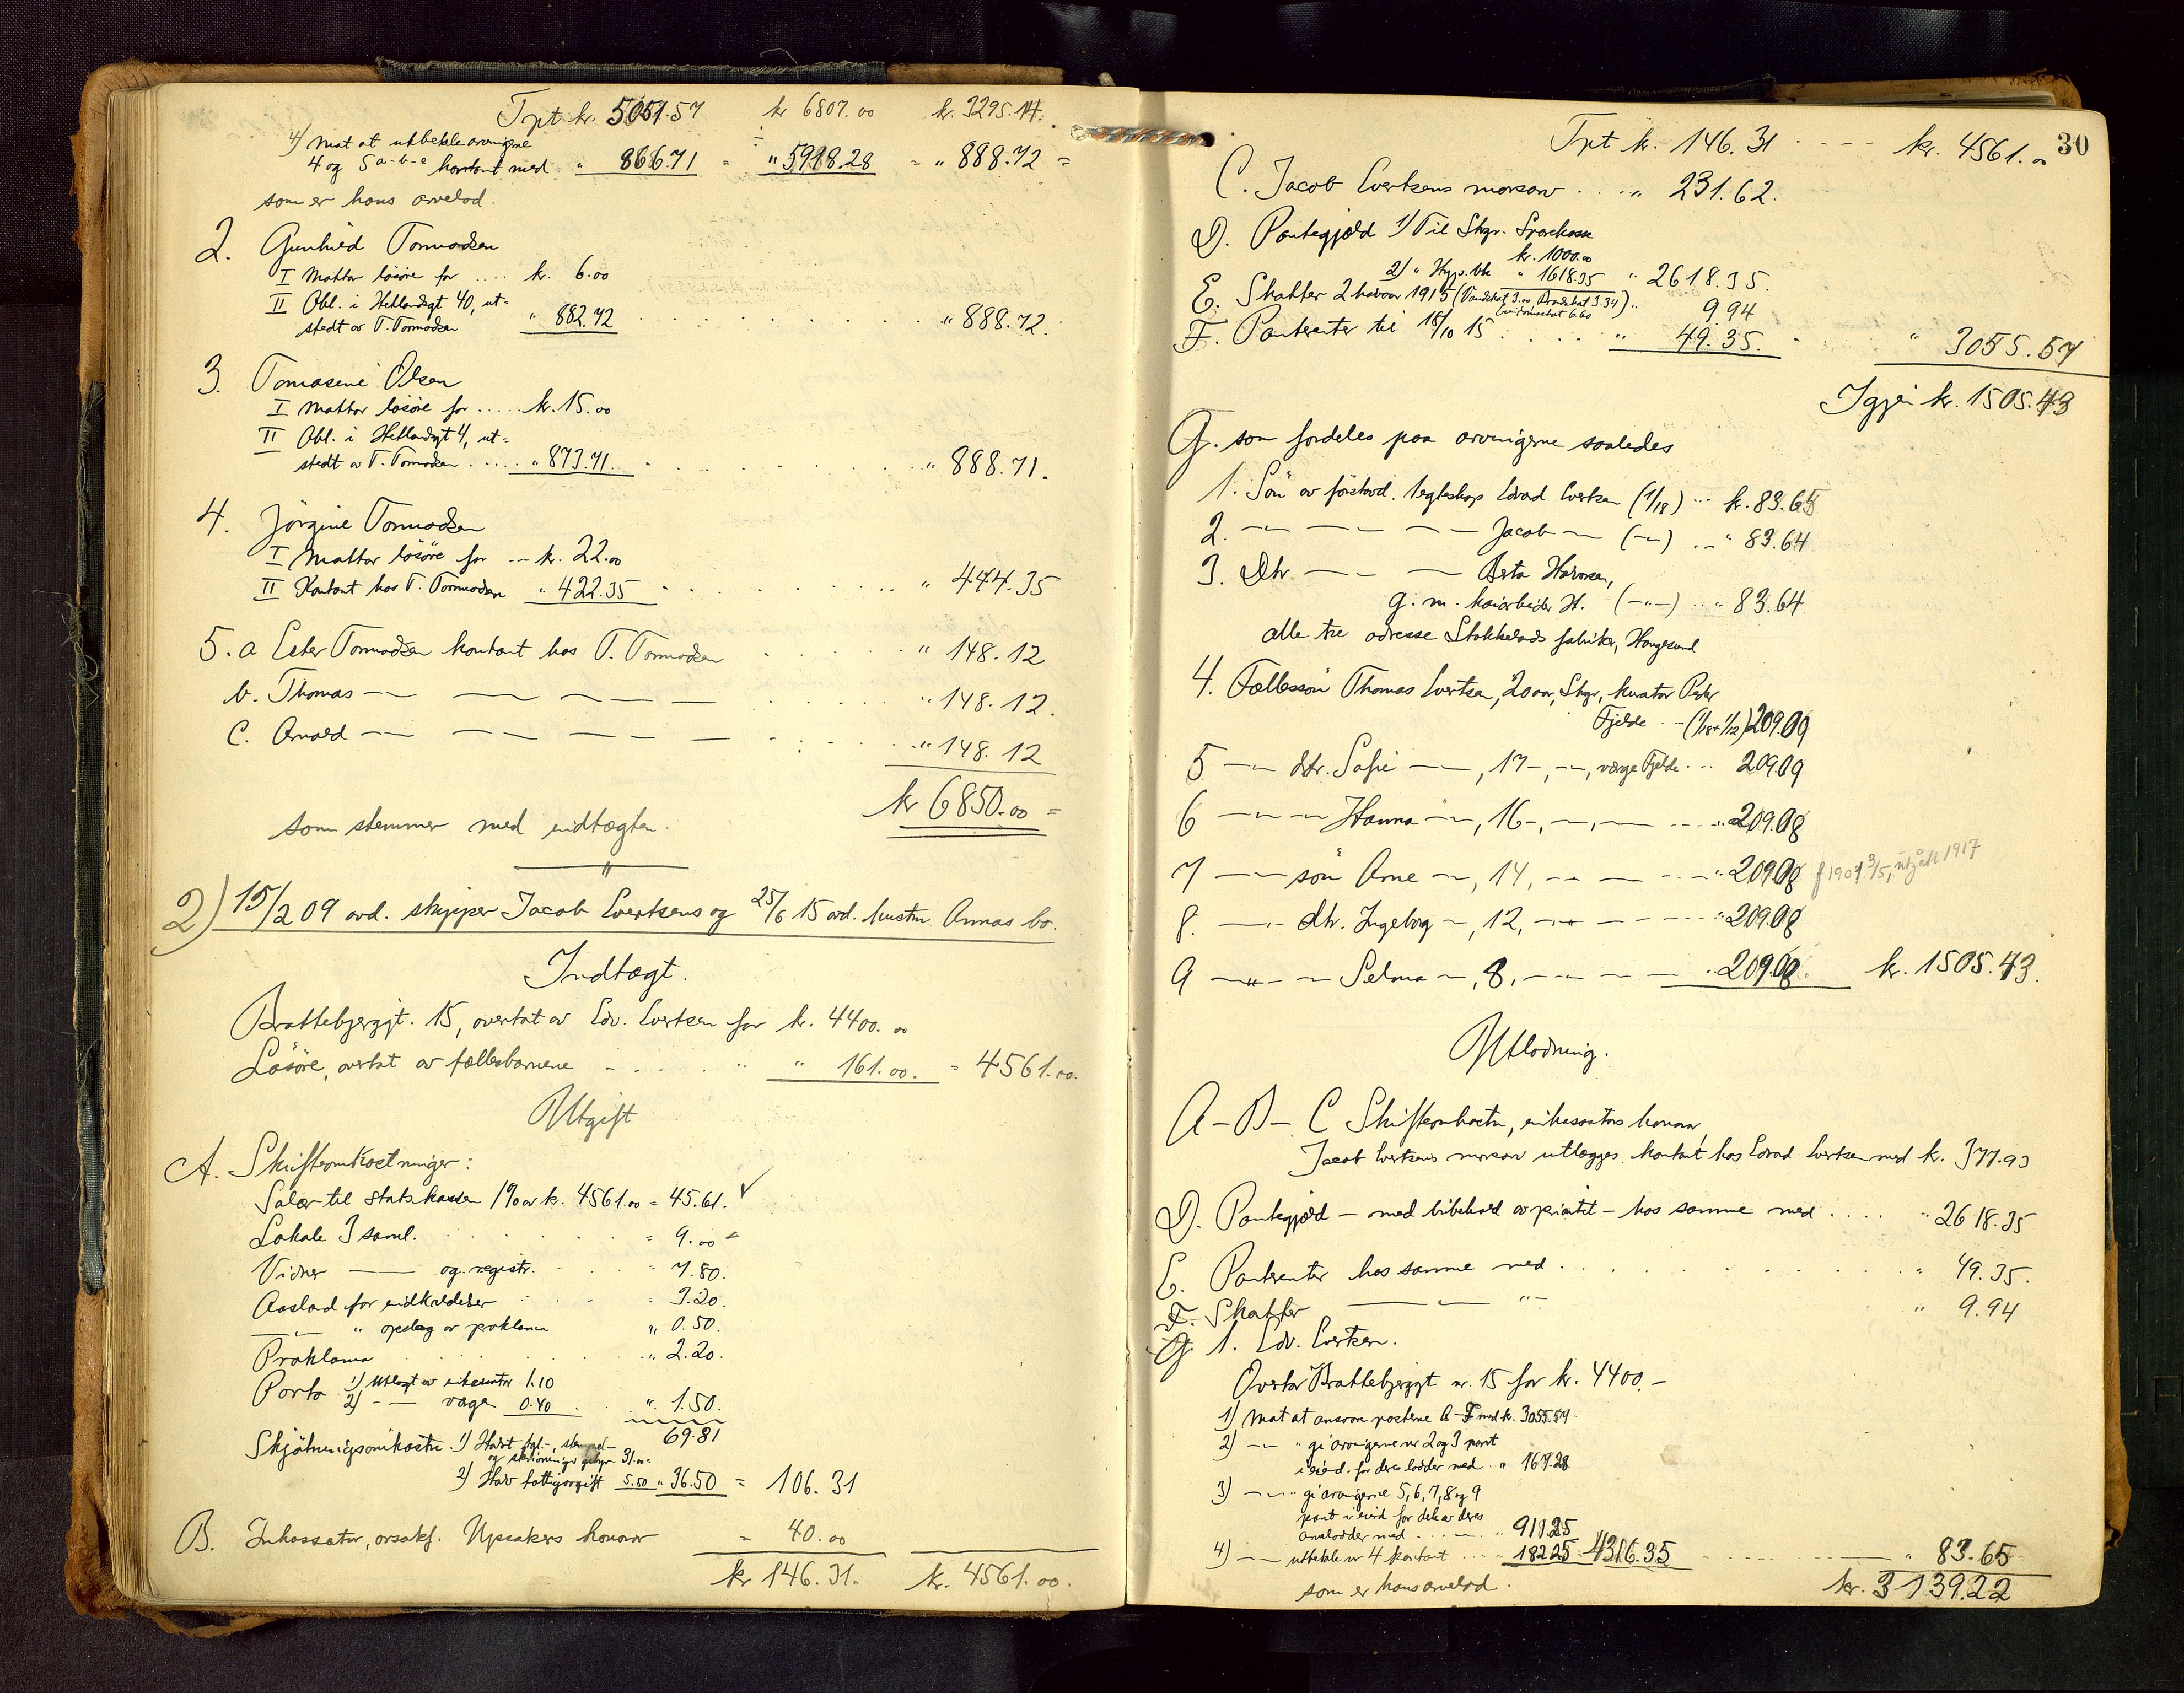 Tpt kr. 5051.57 kr 6807.00 kr. 3295.14.
4) mot at utbetale arvingerne
4 og 5 a-b-c kontant med " 866.71 = " 5918.28 = " 888.72 =
som er hans arvelod.
2. Gunhild Tormodsen
I Mottar løsøre for .... kr. 6.00
II Obl. i Hetlandsgt 40, ut=
stedt av T. Tormodsen " 882.72 . . . . . " 888.72.
3. Tomasine Olsen
I Mottar løsøre for ..... kr. 15.00
II Obl. i Hetlandsgt 4, ut=
stedt av T. Tormodsen ..... " 873.71. . . . . . " 888.71.
4. Jörgine Tormodsen
I Mottar løsøre for ... kr. 22.00
II Kontant hos T. Tormodsen " 422.35 . . . . . " 444.35
5. a Ester Tormodsen kontant hos T. Tormodsen . . . . " 148.12
b. Thomas —"— — — — — . . . . " 148.12.
c. Arnold —"— — — — — — . : . . " 148.12
kr 6850.00 =
som stemmer med indtægten.
2) 15/2 09 avd. skipper Jacob Evertsens og 25/6 15 avd. hustru Annas bo.
Indtægt.
Brattebjergt. 15, overtat av Edv. Evertsen for kr. 4400.00
Løsöre, overtat av fællesbarnene - . . . " " 161.00. = 4561.00.
Utgift
A. Skifteomkostninger:
Salær til statskassen 1% av kr. 4561.00 = 45.61. ✓
Lokale 3 saml. . . . . = 9.00
Vidner —— og registr. . . = 7.80.
Avslad for indkaldelser . . = 3.20.
—"— " opslag av proklama " 0.50.
Proklama . . . . " 2.20.
Porto 1) Utlagt av inkassator 1.10
2) - — værge 0.40 . . " 1.50.
69.81
Skjötningsomkostn. 1) Halvt tgl.-, stempel-
og skjötningsgebyr 31.00
2) Halv fattigavgift 5.50 " 36.50 = 106.31
B. Inkassator, orsakf. Upsakers honorar = 40.00
kr 146.31. kr. 4561.00.
30
Tpt kr. 146.31 . - - - kr. 4561.00
C. Jacob Evertsens morsarv . . . " 231.62.
D. Pantegjæld 1) Til Skgr. Sparekasse
kr. 1000.00
2) " Hyp. bk " 1618.35 " 2618.35.
E. Skatter 2 halvaar 1915 (Vandskat 3.00 Brandskat 3.34) ..
9.94
F. Panterenter til 15/10 15 . . . . " 49.35. . . " 3055.57
Igjen kr. 1505.43
G. som fordeles paa arvingerne saaledes
1. Sön av förstavd. 1 egteskap Edvard Evertsen (1/18) ... kr. 83.65
2. —"— — — — Jacob —"— (—"—) ..." 83.64
3. Dtr — — — Berta Halvorsen,
g. m. havnarbeider H. (—"—) .. " 83.64
alle tre adresse Stokkelands fabriker, Haugesund
4. Fællessön Thomas Evertsen, 20 aar, Skgr, kurator Peder
Fjelde - - (1/18+1/12) 209.09
5 —"— dtr. Sofie —"—, 17-, —"—, værge Fjelde ... 209.09
6 —"— — Hanna —"—, 16-, —"—, — .... 209.08
7 —"— sön Arne —"—, 14, —"— — — - - " 209.08 f 1901 3/5, utgått 1917
8. —"— dtr. Ingeborg —, 12, —"— — — - - " 209.08
9 —"— — Selma —, 8, —"— — — . 209.08 kr. 1505.43.
Utlodning.
A - B - C Skifteomkostn, inkassators honorar,
Jacob Evertsens morsarv utlægges kontant hos Edvard Evertsen med kr. 377.93
D. Pantegjæld - med bibehold av prioritet - hos samme med . . . . " 2618.35
E. Panterenter hos samme med . . . . . . " 49.35.
F. Skatter —— — "- " 9.94
G. 1. Edv. Evertsen.
Overtar Brattebjergt nr. 15 for kr. 4400.-
1) mot at ansvare posterne A-F med kr. 3055.57
2) —"— " gi arvingerne nr 2 og 3 pant
i eiend. for deres lodder med .. " 167.28
3) —"— " gi arvingerne 5, 6, 7, 8 og 9
pant i eiend for del av deres
arvelodder med . . . — . " 911.25
4) —"— utbetale nr 4 kontant .... 182.25 4316.35 . . . . — " 83.65
som er hans arvelod. kr. 3139.22